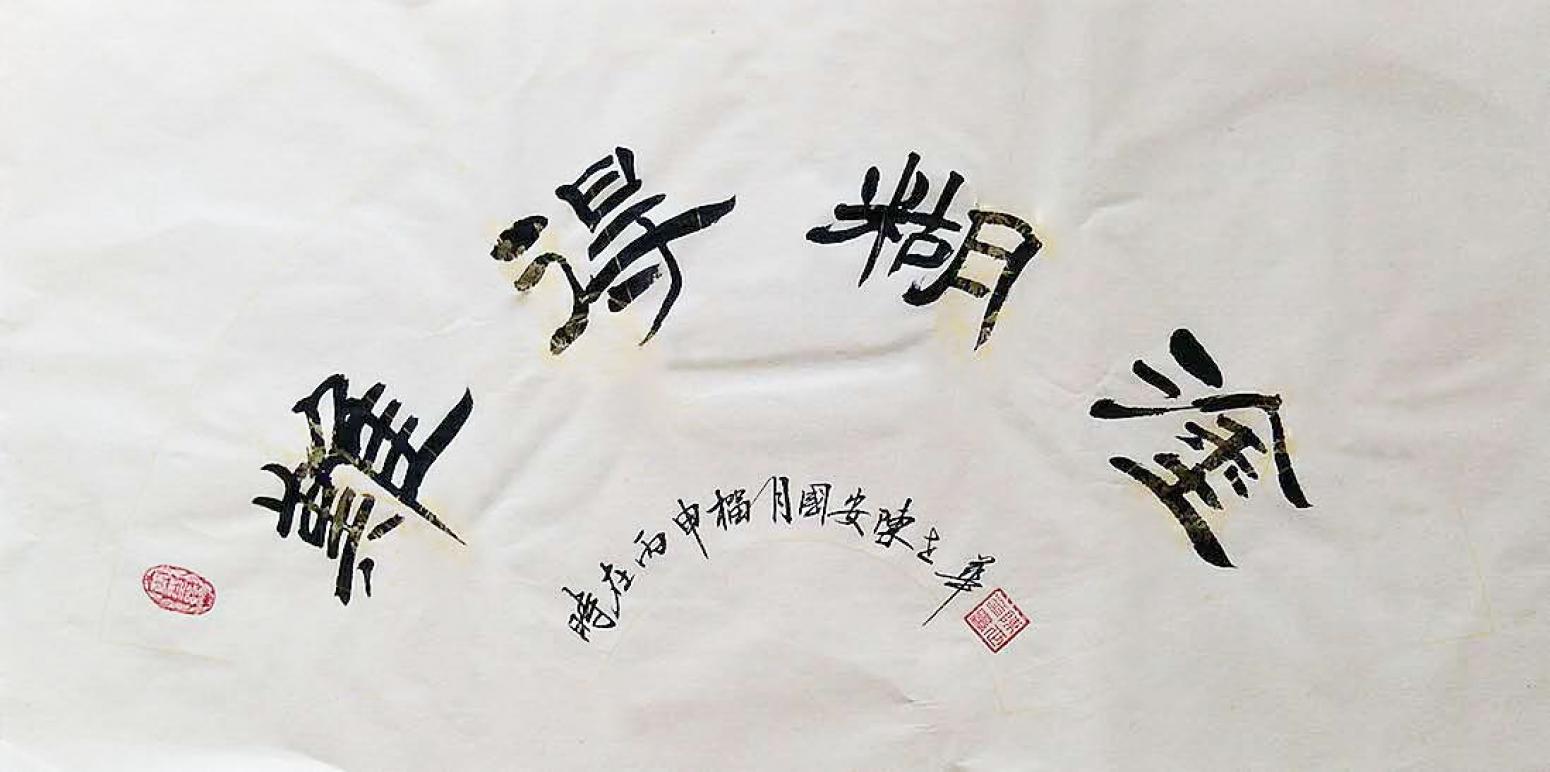 難得糊塗
時在丙申榴月國安陳華